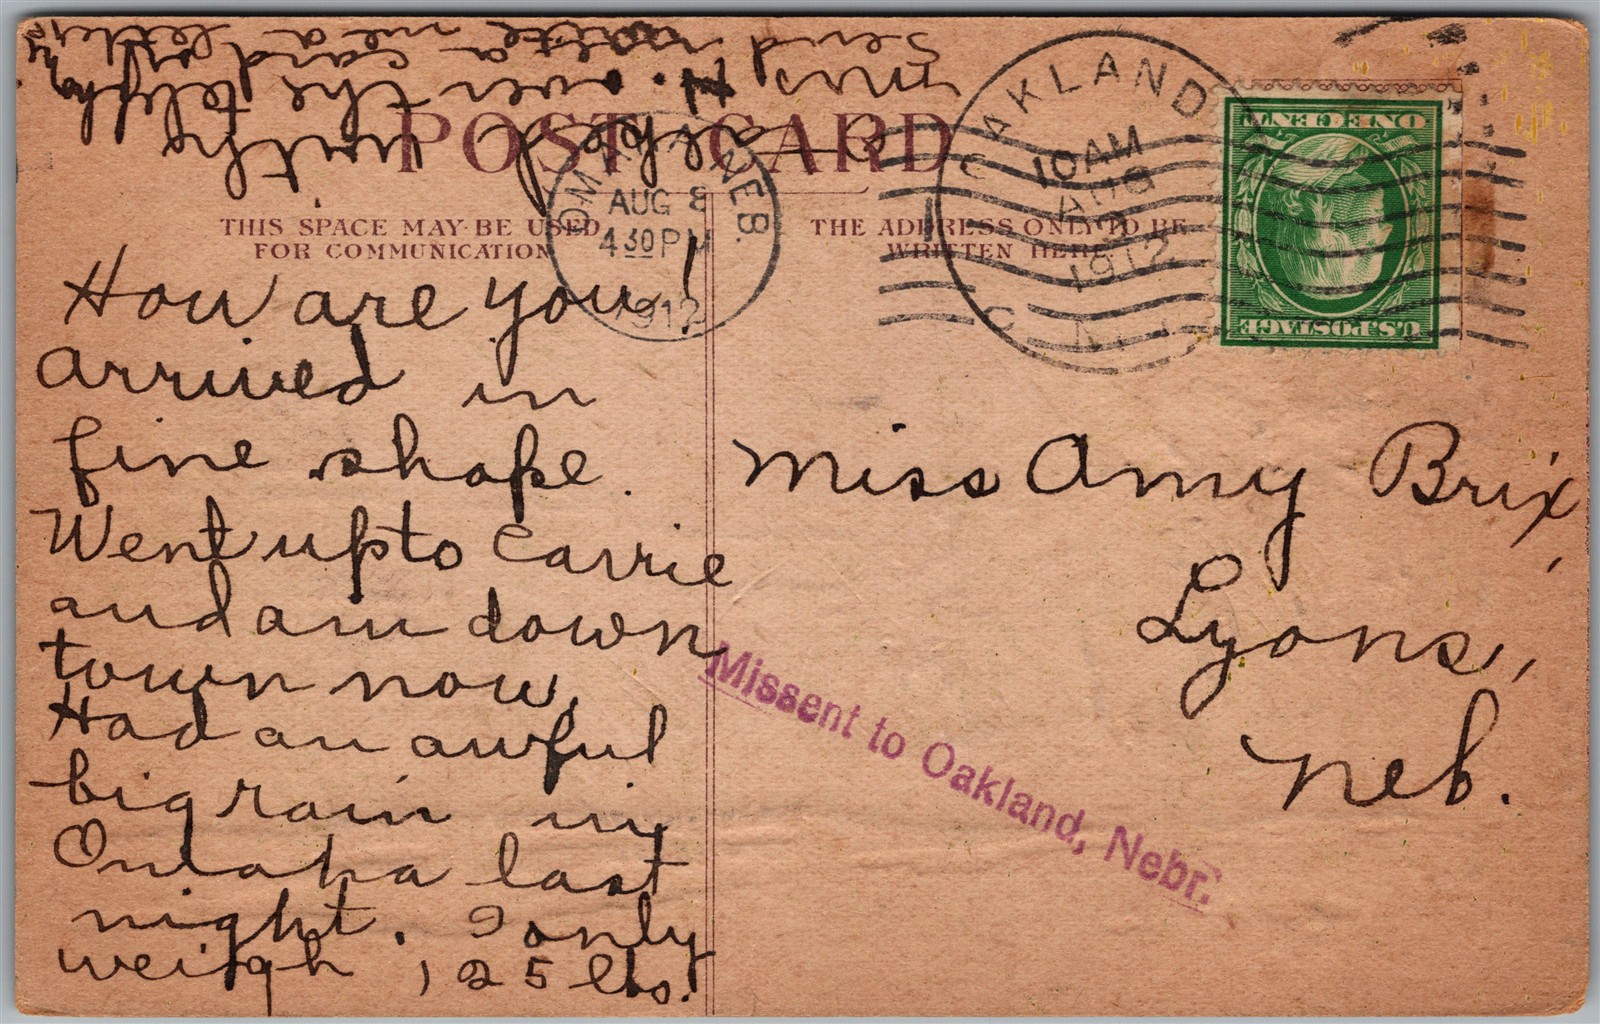 POST CARD
THIS SPACE MAY BE USED
FOR COMMUNICATION
THE ADDRESS ONLY TO BE
WRITTEN HERE
OMAHA, NEB.
AUG 8
4 30 PM
1912
OAKLAND
10 AM
AUG
9
1912
ONE CENT
U.S. POSTAGE
How are you!
Arrived in
fine shape.
Went up to Carrie
and am down
town now.
Had an awful
big rain in
Omaha last
night. I only
weigh 125 lbs.
Talked with
Mrs. N. over the telephone
Send me a card or letter
Miss Amy Brix,
Lyons,
Neb.
Missent to Oakland, Nebr.